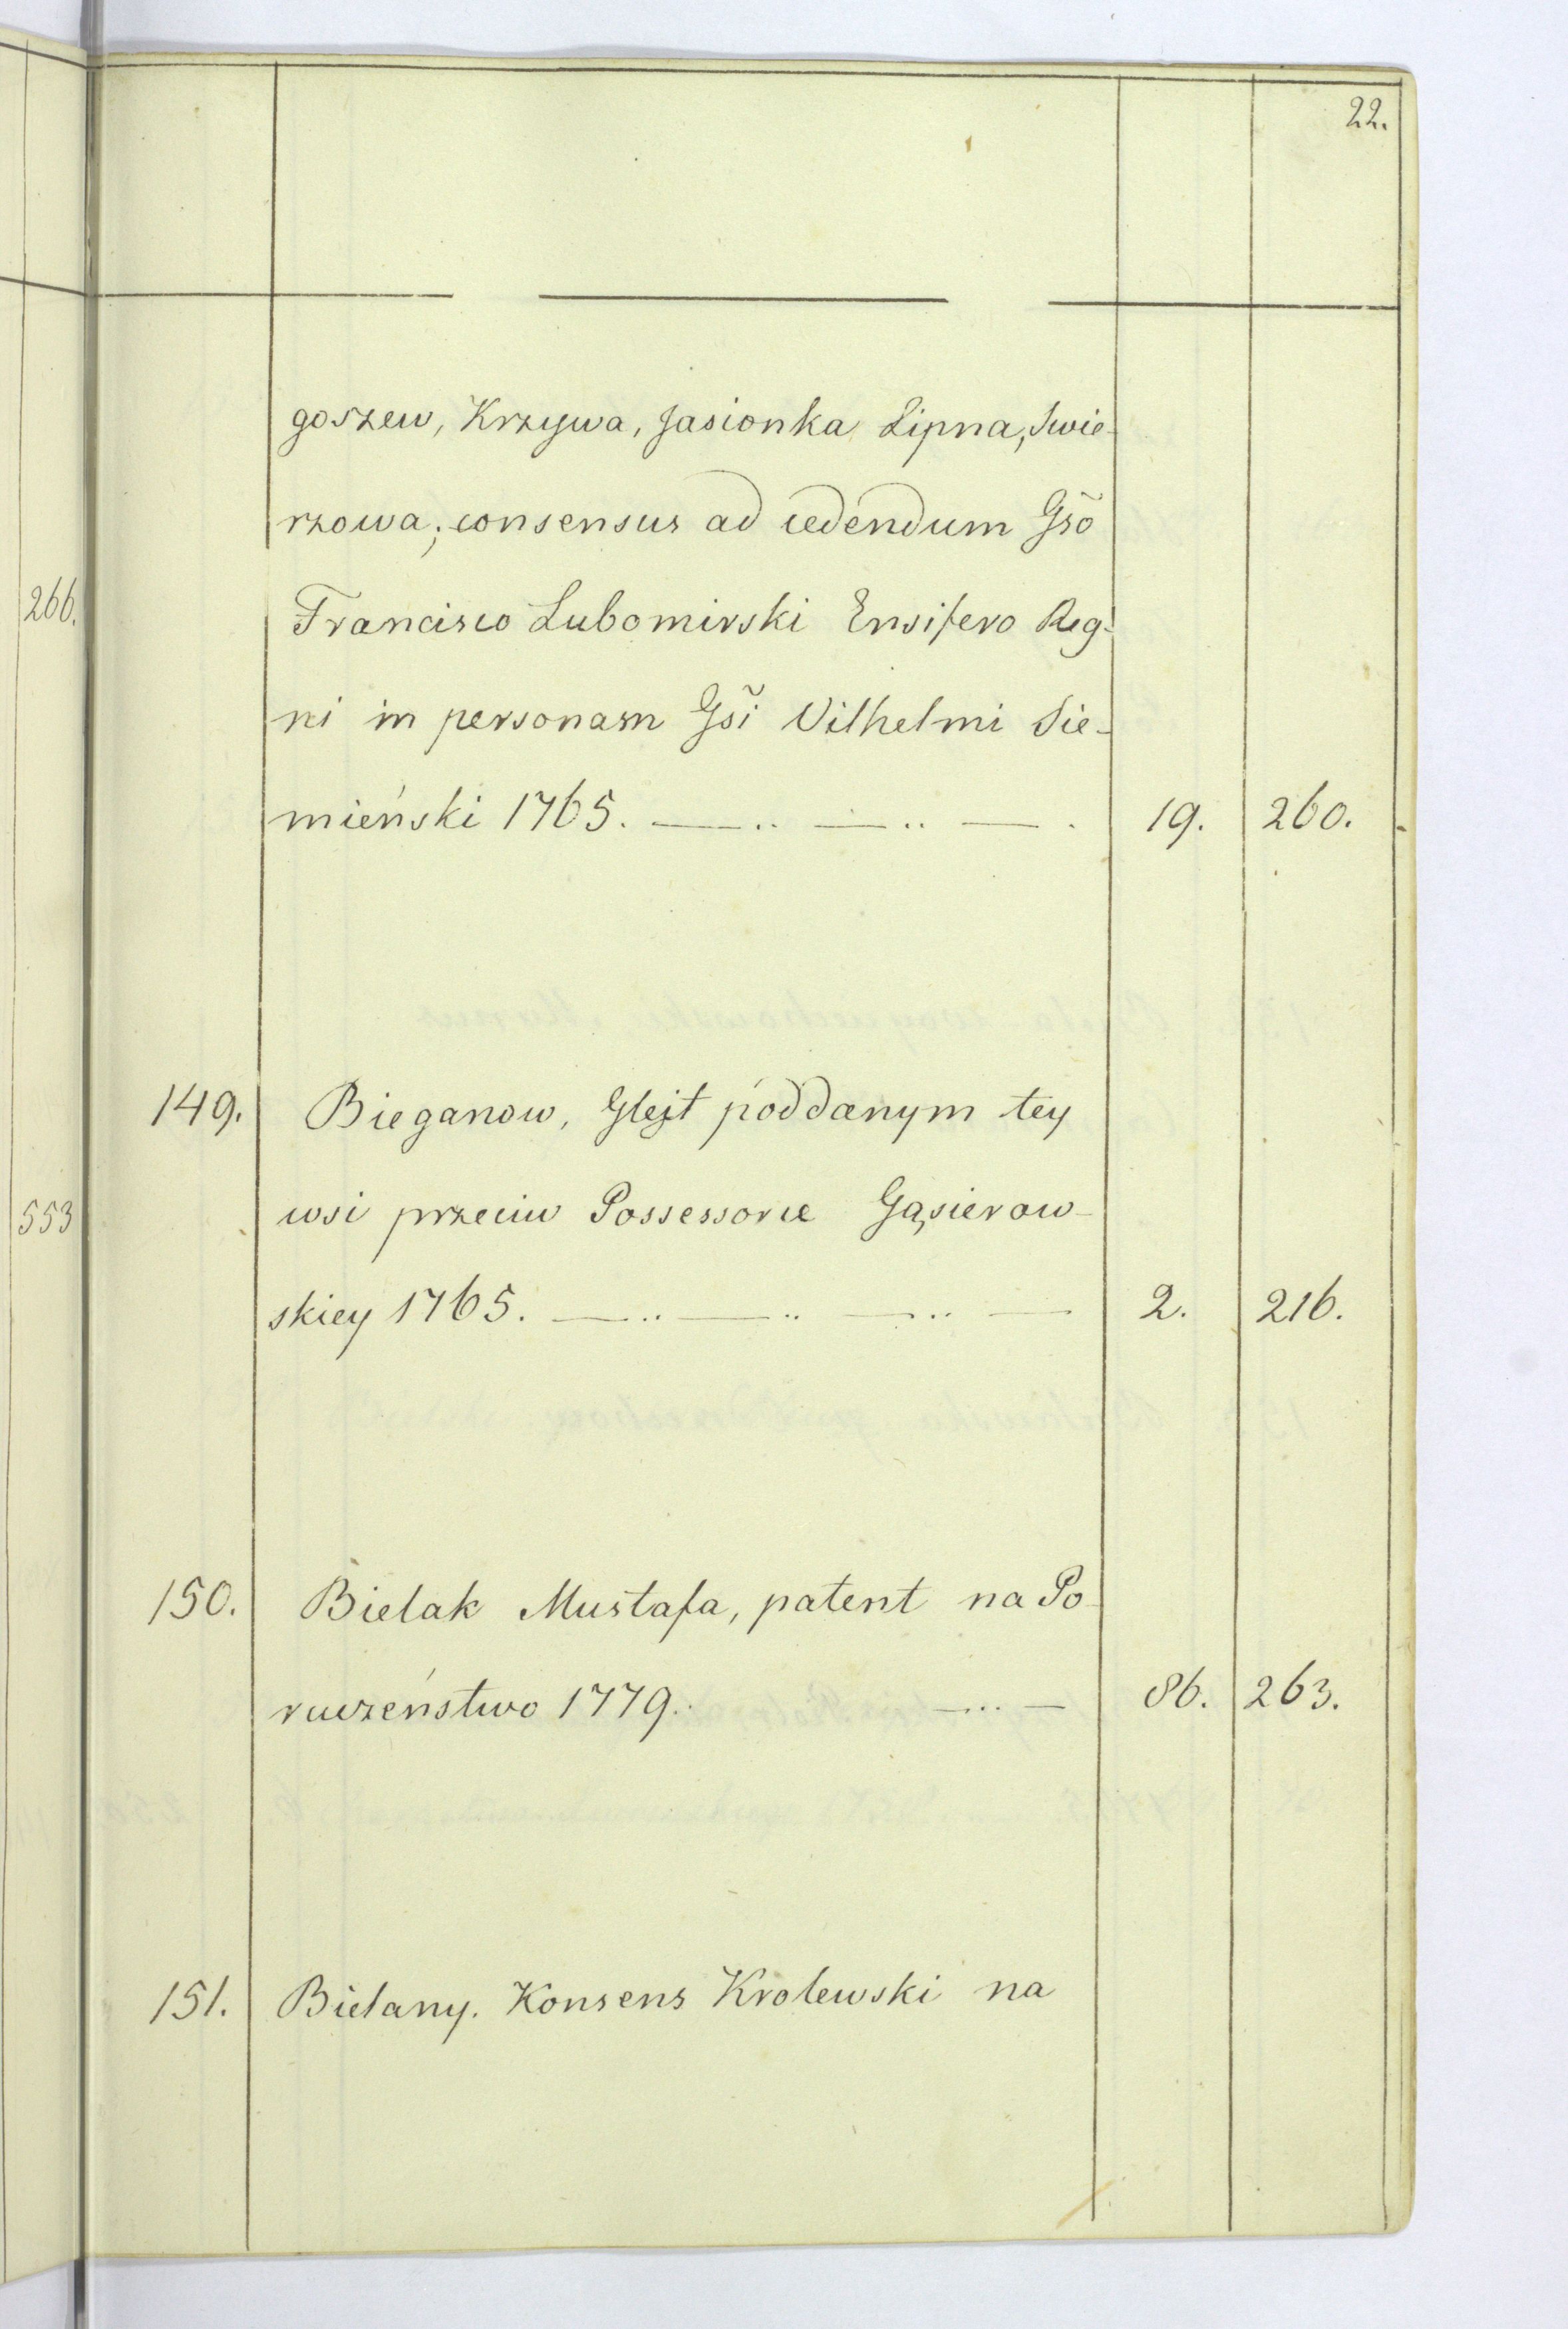 22.
goszew, Krzywa, Jasionka Lipna, Swie-
rzowa; consensus ad cedendum Gsõ
Francisco Lubomirski Ensifero Reg-
ni in personam Gsĩ Vilhelmi Sie-
mieński 1765. —..—..—. 19. 260.
266.
149. Bieganow, Glejt poddanym tey
wsi przeciw Possessorce Gąsierow-
553
skiey 1765. —..—..—..— 2. 216.
150. Bielak Mustafa, patent na Po-
ruczeństwo 1779. —...— 86. 263.
151. Bielany. Konsens Krolewski na